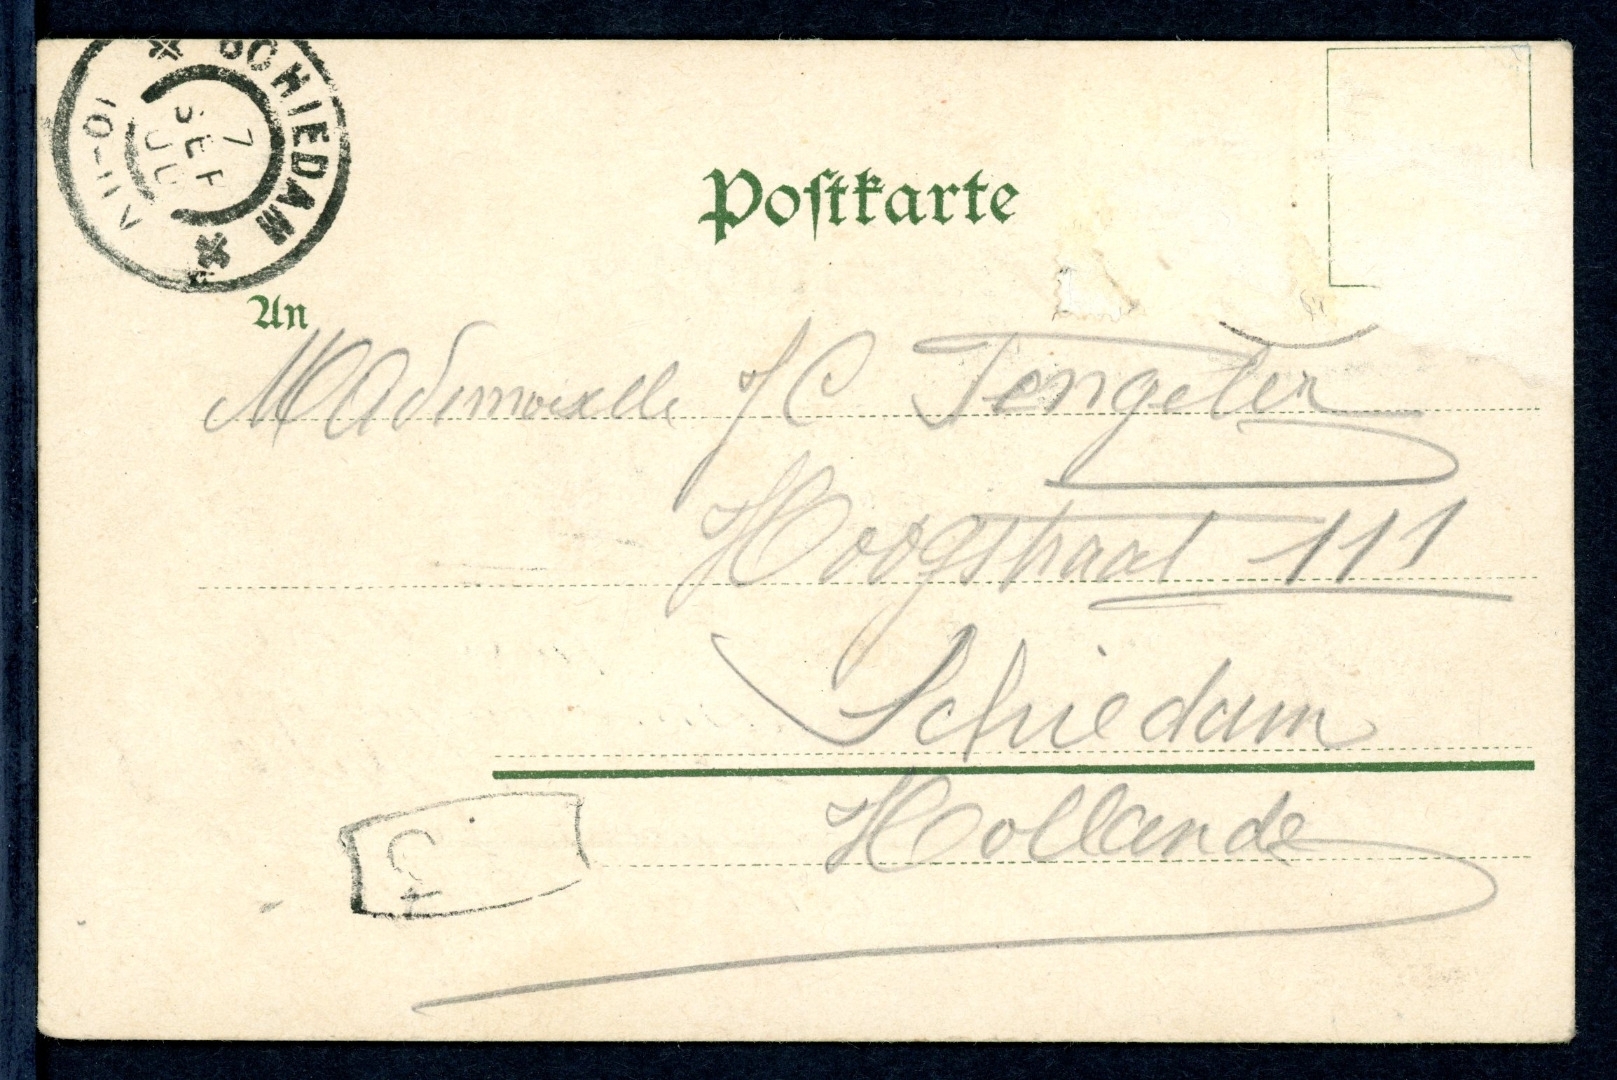 SCHIEDAM
7
SEP
10-11V
Postkarte
An
Mademoiselle J C Tengeler
Hoogstraat 111
Schiedam
Hollande